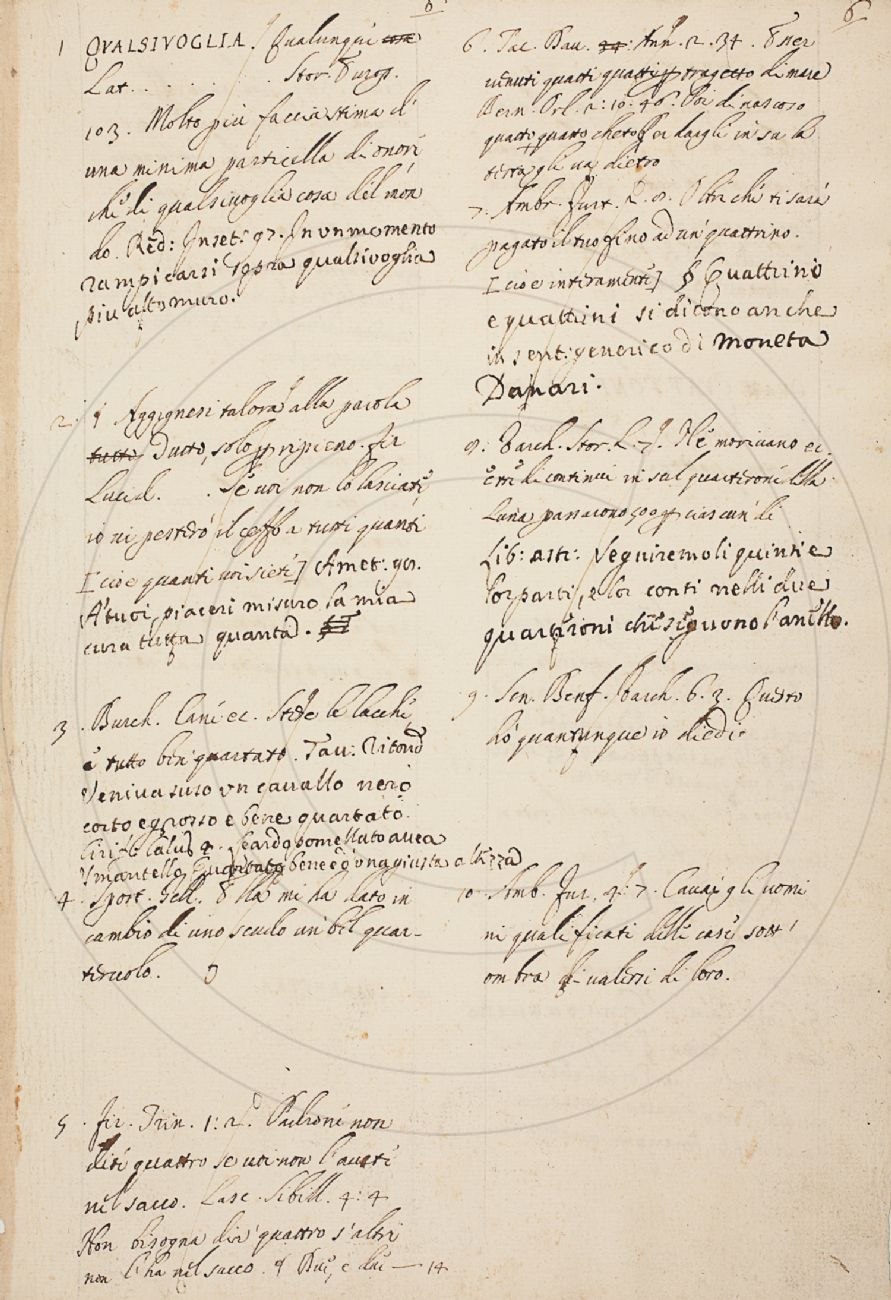 6
1 QVALSIVOGLIA. Qualunque cosa
Lat. . . . . . . Stor. Europ.
103. Molto più faccia stima d'
una minima particella di onore
che di qualsivoglia cosa del mon
do. Red: Inset: 97. In un momento
rampicarsi sopra qualsivoglia
più alto muro.
2. § Aggignesi talora alla parola
tutti Tutto, solo p ripieno. Fir
Lucid. . Se voi non lo lasciate
io vi pesterò il ceffo a tutti quanti
[cioè quanti voi siete] Amet: 90.
A tuoi piaceri misuro la mia
cura tutta quanta.
3. Burch. Cani ec. Stese le lacche,
e tutto ben quartato. Tav: Ritond
Veniva suso un cavallo nero
corto e grosso e bene quartato.
Ciriff: Calv 2. Leardo pomellato avea
'l mantello, Quartato bene e d' una giusta altezza
4. Sport. Gell. Ella mi ha dato in
cambio di uno scudo un bel quar-
teruolo.
5. Fir. Trin. 1: 2. Padrone non
dite quattro se voi non l'avete
nel sacco. Lasc. Sibill. 4: 4
Non bisogna dir quattro s'altri
non l'ha nel sacco. § Due, e due — 14
6
6. Tac. Dav. Ann. 2. 34. Esser
venuti quatti quatti p tragetto di mare
Bern. Orl. 2: 10: 46. Poi di nascoso
quatto quatto cheto
terra gli va dietro
7. Ambr. Furt. 2. 8. Oltre che ti sarà
pagato il tuo fino ad un quattrino.
[cioè interamente] § Quattrino
e quattrini si dicono anche
in sent: generico di Moneta
Danari.
8. Varch. Stor. L. 7. Ne morivano ec.
e tre di continui in sul quarteron della
Luna passarono 500 p ciascun dì
Lib: astr: Seguiremoli quinti e
lor parti, e lor conti nelli due
quartironi che seguono l'anello.
9. Sen. Benf. Varch. 6. 3. Questo
ho quantunque io diedi
10. Amb. Fur. 4: 7. Cavai gli uomi
ni qualificati delle case sott'
ombra di valersi di loro.